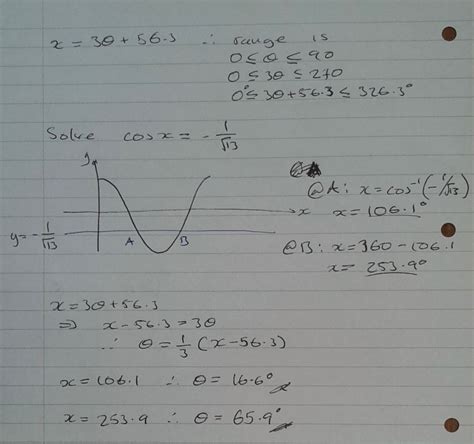 x = 3θ + 56.3 ∴ range is
0 ≤ θ ≤ 90
0 ≤ 3θ ≤ 270
0° ≤ 3θ + 56.3 ≤ 326.3°
Solve cos x = -1/√13
y
@A: x = cos⁻¹(-1/√13)
x
x = 106.1°
y = -1/√13
A
B
@B: x = 360 - 106.1
x = 253.9°
x = 3θ + 56.3
⇒ x - 56.3 = 3θ
∴ θ = 1/3 (x - 56.3)
x = 106.1 ∴ θ = 16.6°
x = 253.9 ∴ θ = 65.9°